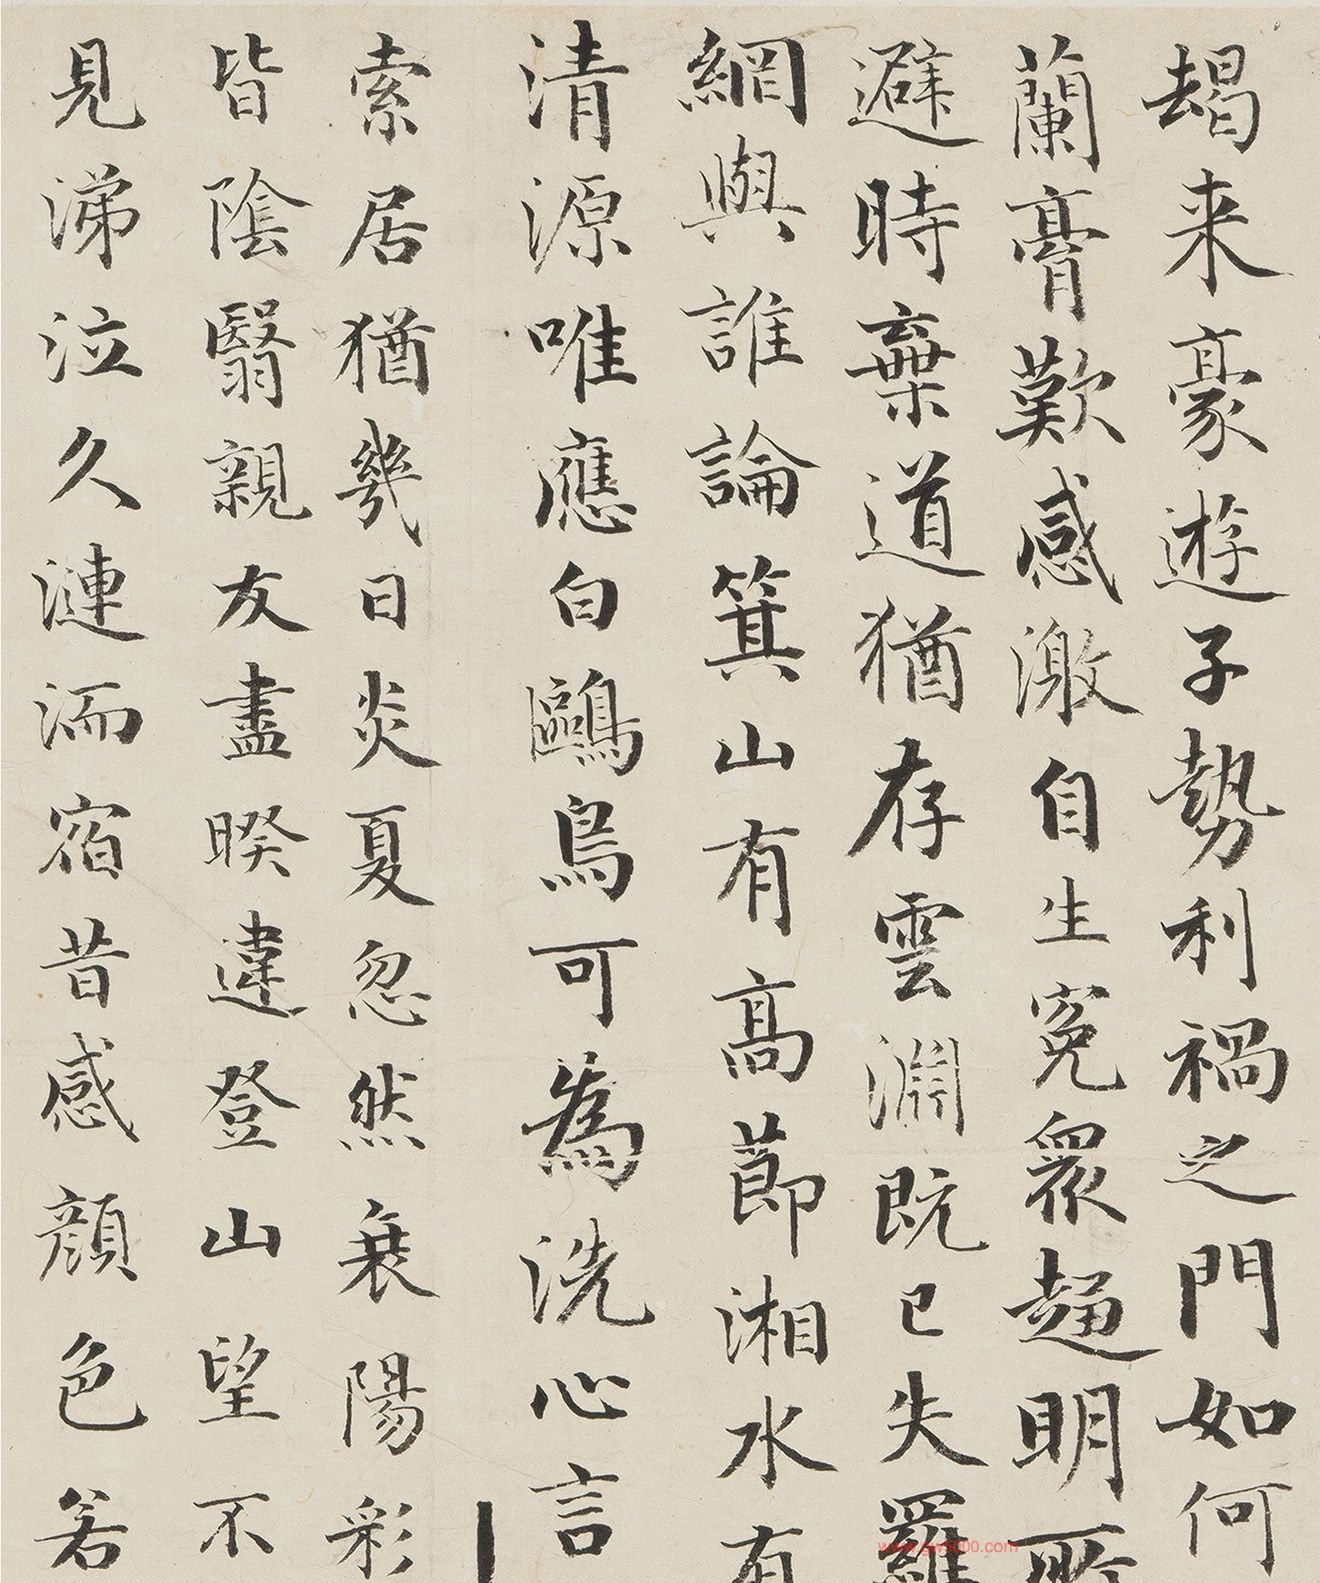 朅来豪遊子勢利禍之門如何
蘭膏歎感激自生冤衆趍明所
避時棄道猶存雲淵既已失羅
網與誰論箕山有高莭湘水有
清源唯應白鷗鳥可為洗心言
索居猶幾日炎夏忽然衰陽彩
皆陰翳親友盡暌違登山望不
見涕泣久漣洏宿昔感顔色若
www.gw5000.com